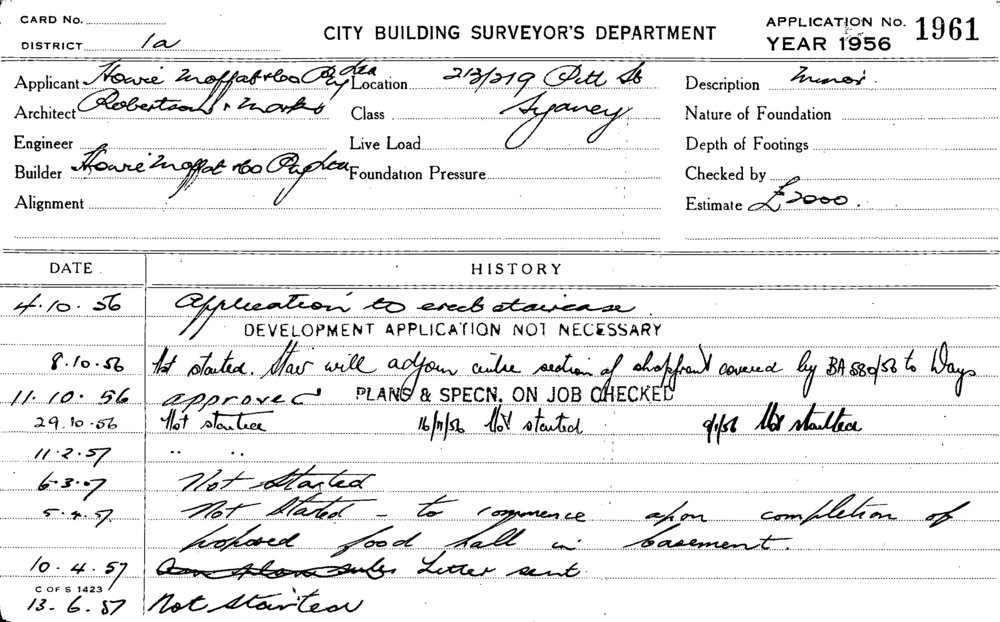 CARD No.
DISTRICT 1a
CITY BUILDING SURVEYOR'S DEPARTMENT
APPLICATION No. 1961
YEAR 1956
Applicant Howie Moffat & Co Pty Ltd Location 213/219 Pitt St Description Minor
Architect Robertson & Marks Class Sydney Nature of Foundation
Engineer Live Load Depth of Footings
Builder Howie Moffat & Co Pty Ltd Foundation Pressure Checked by
Alignment Estimate £2000.
DATE HISTORY
4.10.56 Application to erect staircase
DEVELOPMENT APPLICATION NOT NECESSARY
8.10.56 Not started. Stair will adjoin centre section of shopfront covered by BA 880/56 to Ways
11.10.56 approved PLANS & SPECN. ON JOB CHECKED
29.10.56 Not started 16/11/56 Not started 9/1/56 Not started
11.2.57 " "
6.3.57 Not Started
5.4.57 Not Started - to commence upon completion of
proposed food hall in basement.
10.4.57 Letter sent
C OF S 1423
13.6.57 Not Started